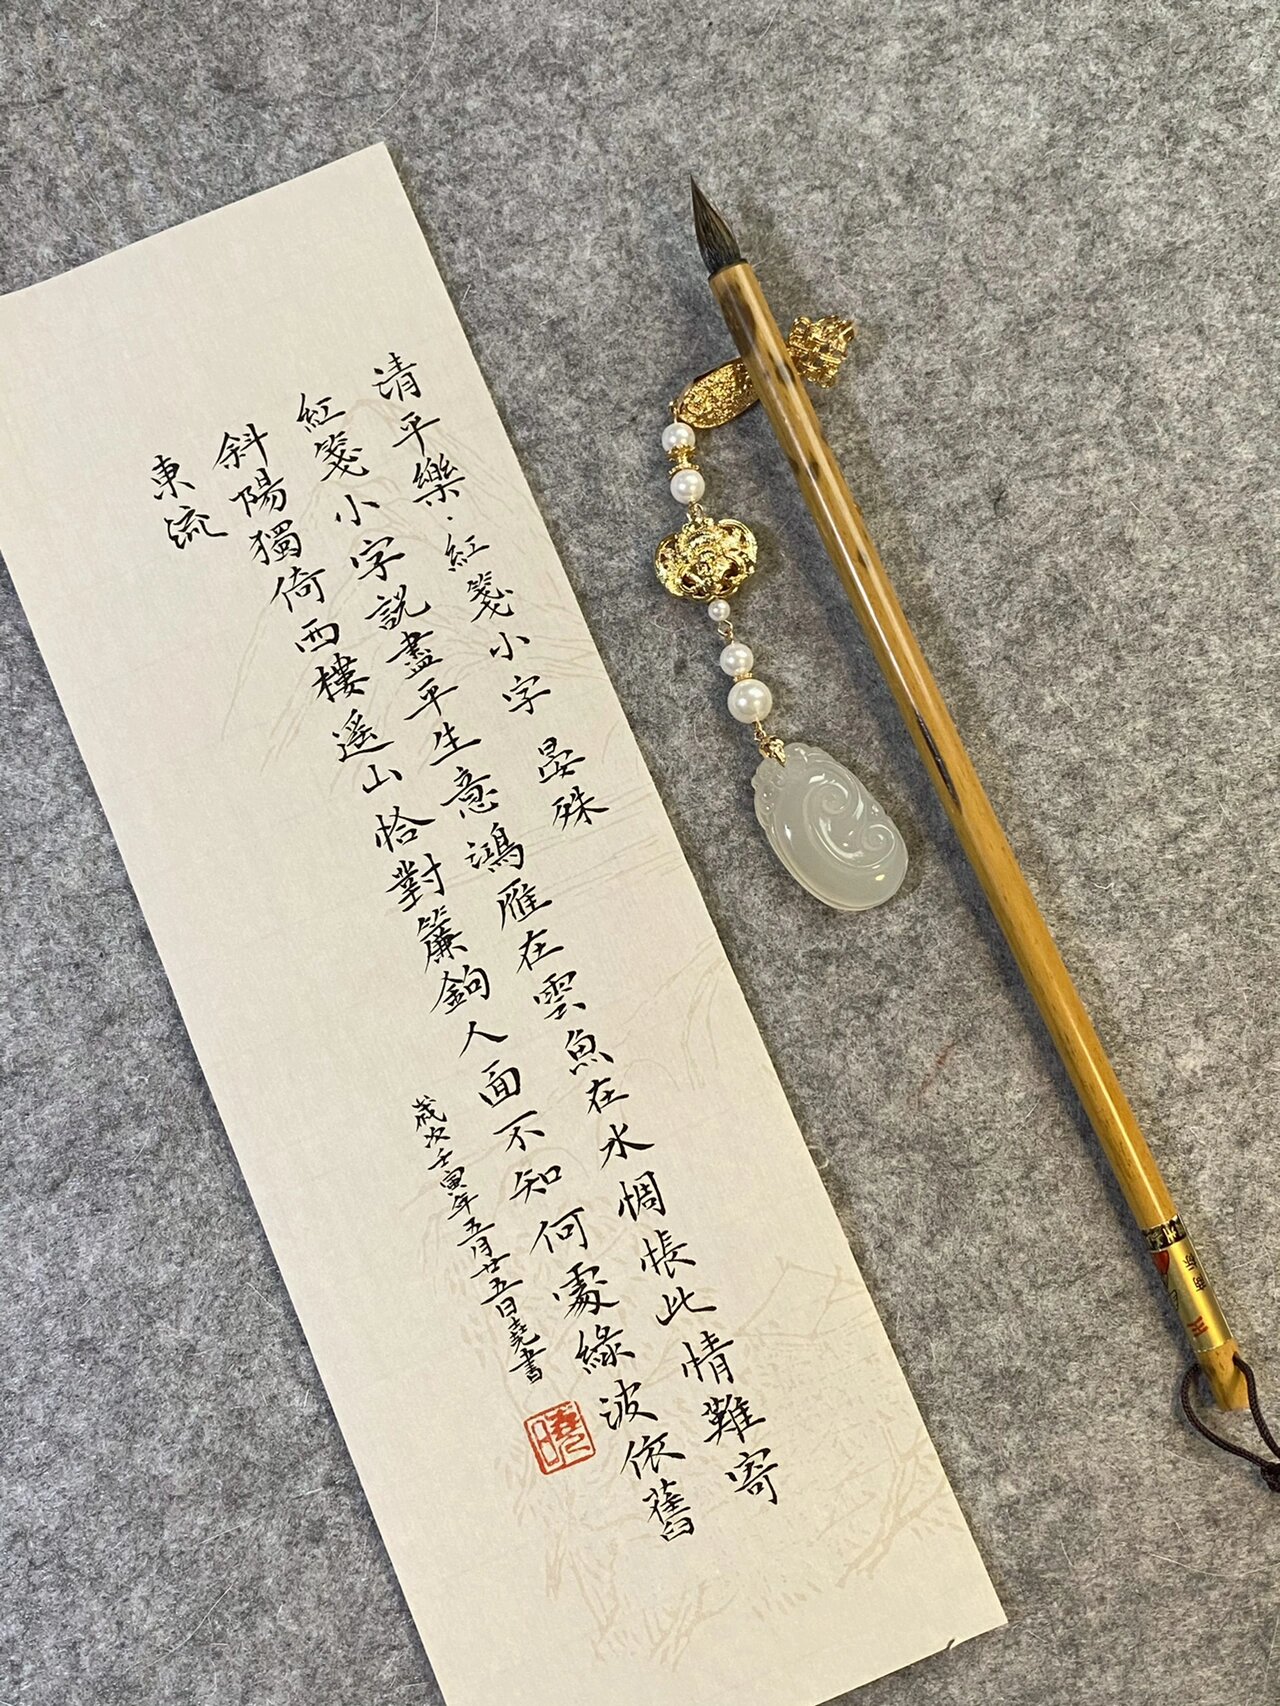 清平樂·紅箋小字 晏殊
紅箋小字說盡平生意鴻雁在雲魚在水惆悵此情難寄
斜陽獨倚西樓遥山恰對簾鉤人面不知何處綠波依舊
東流
歲次壬寅年五月廿五日堯書